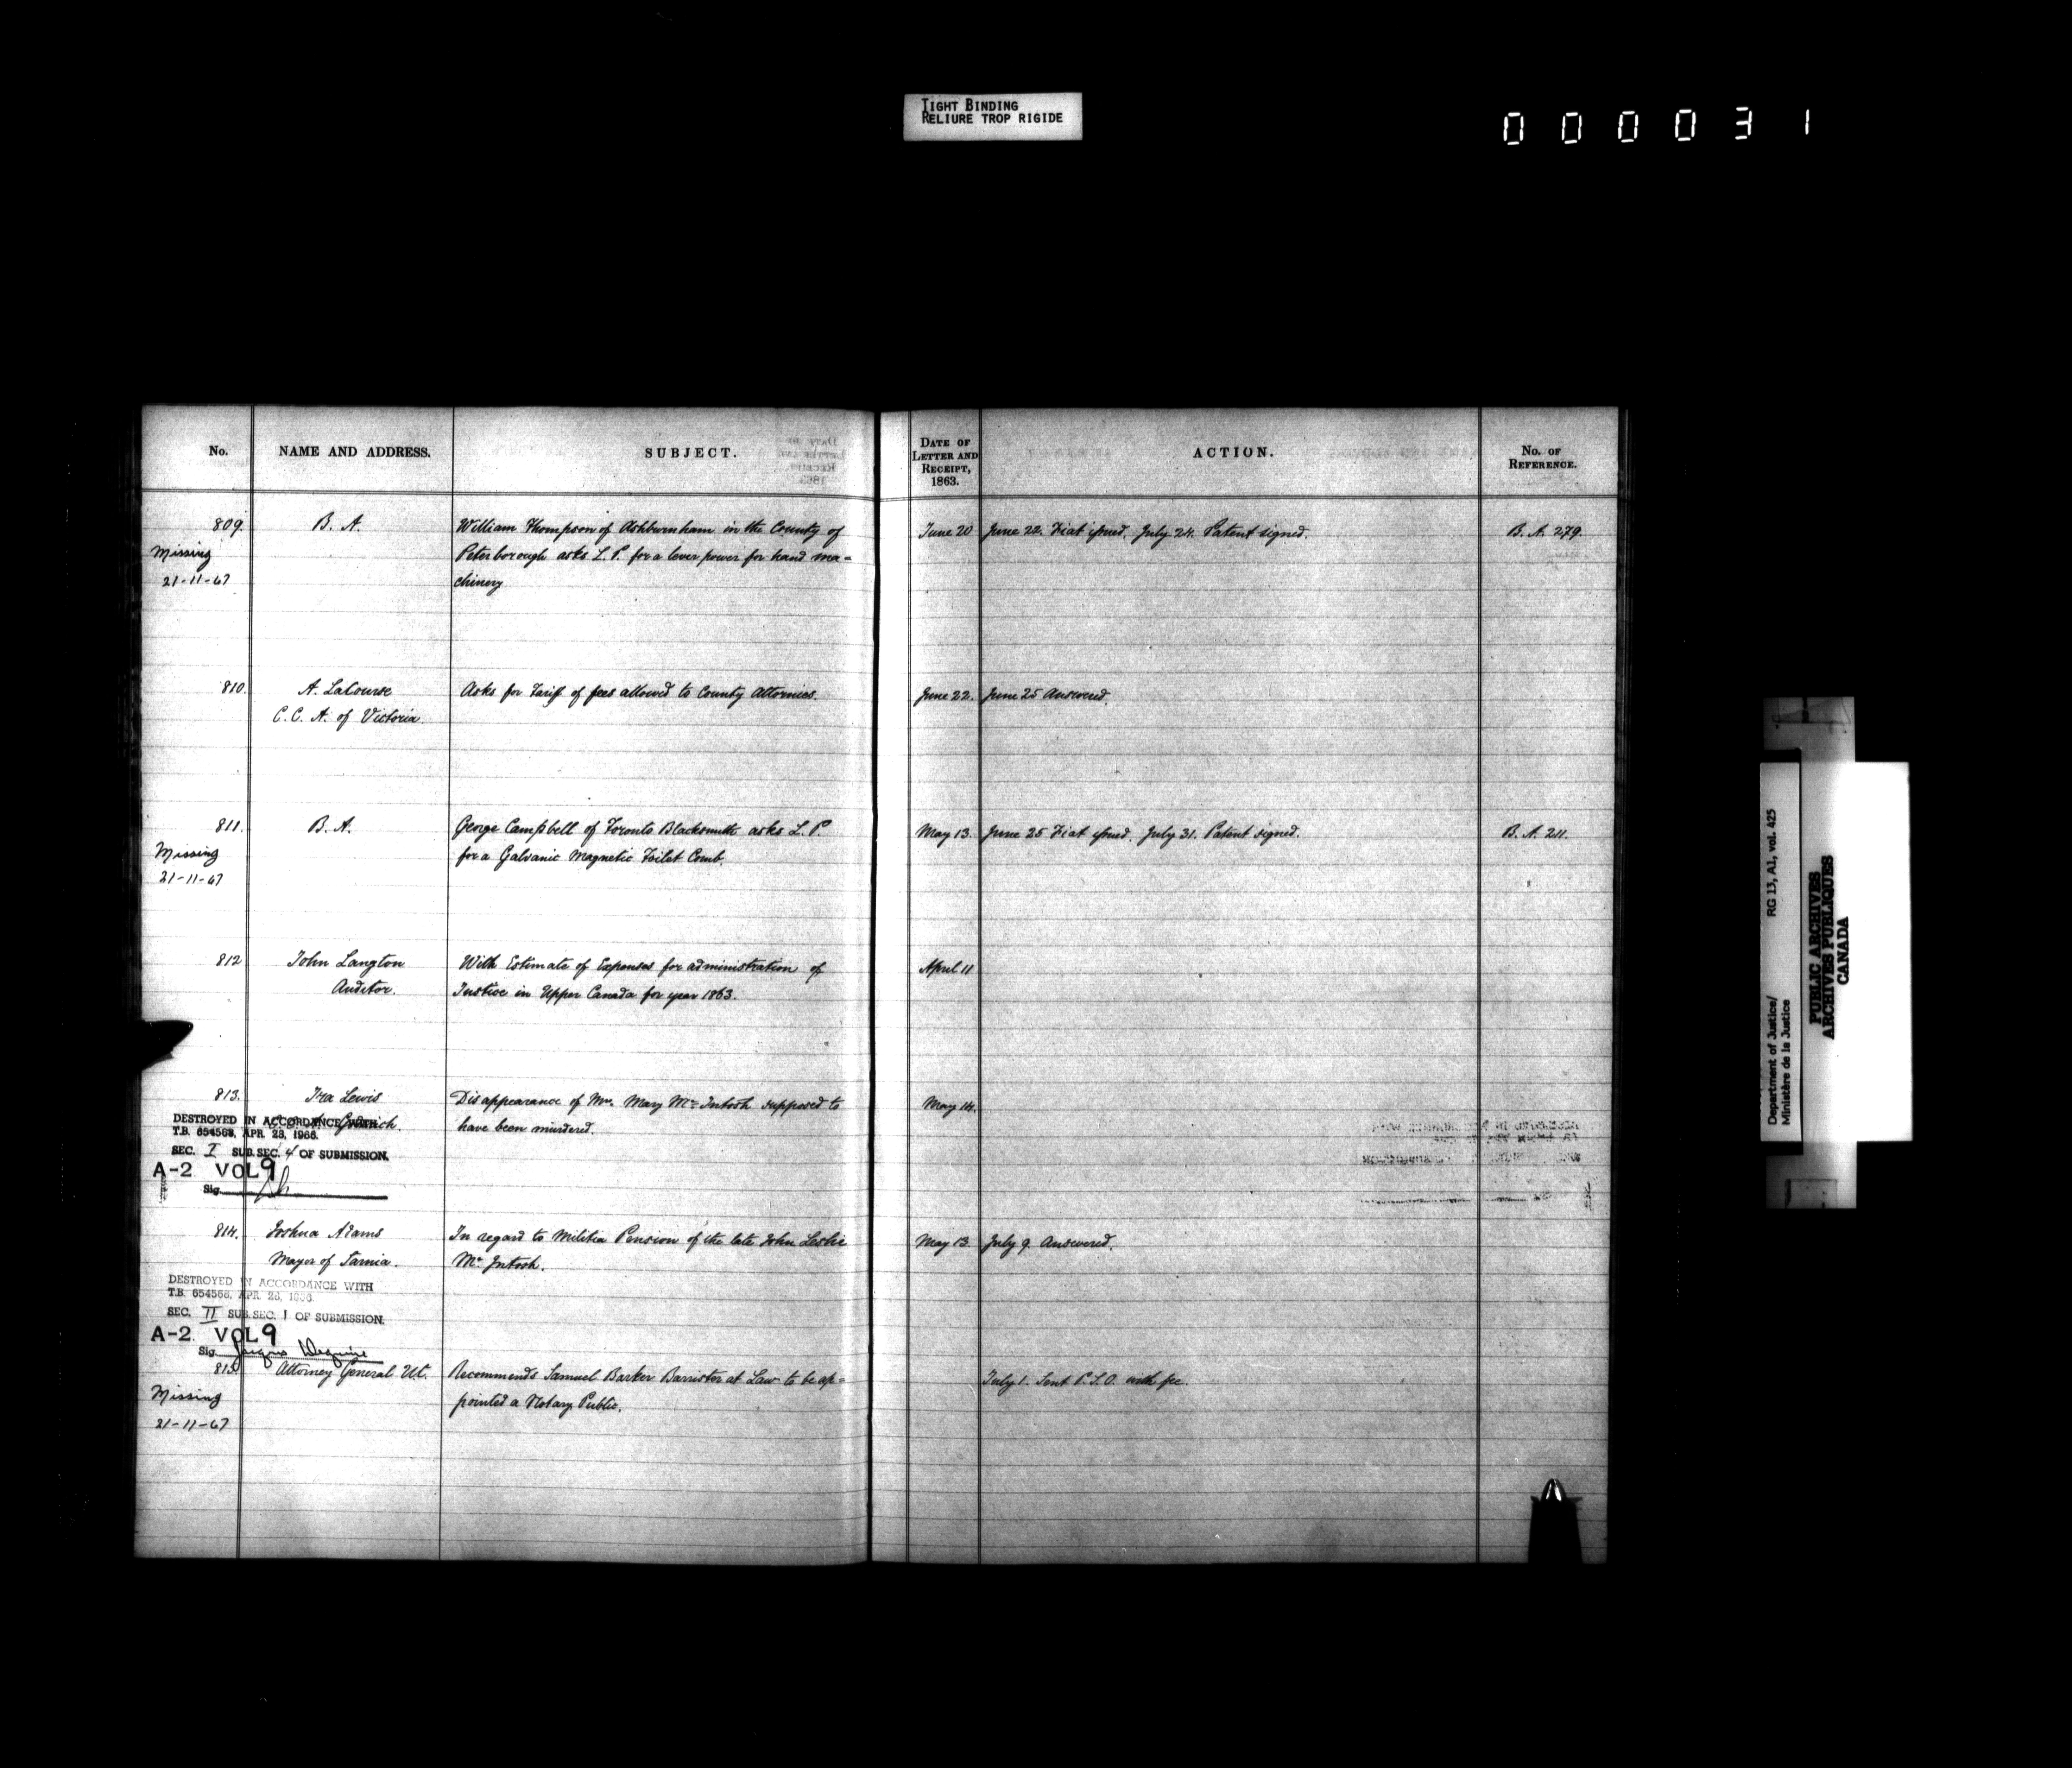 TIGHT BINDING
RELIURE TROP RIGIDE
000031
No.
NAME AND ADDRESS.
SUBJECT.
DATE OF
LETTER AND
RECEIPT,
1863.
ACTION.
No. OF
REFERENCE.
809. B. A. William Thompson of Ashburnham in the County of June 20 June 22. Fiat issued. July 24. Patent signed. B. A. 279.
Missing Peterborough asks L. P. for a lever power for hand ma-
21-11-67 chinery
810. A. LaCourse Asks for Tariff of fees allowed to County Attornies. June 22. June 25 Answered.
C. C. A. of Victoria.
811. B. A. George Campbell of Toronto Blacksmith asks L. P. May 13. June 25 Fiat issued. July 31. Patent signed. B. A. 211.
Missing for a Galvanic Magnetic Toilet Comb.
21-11-67
812 John Langton With Estimate of Expenses for administration of April 11
Auditor. Justice in Upper Canada for year 1863.
813. Ira Lewis Disappearance of Mrs. Mary McIntosh supposed to May 14.
Goderich. have been murdered.
DESTROYED IN ACCORDANCE WITH
T.B. 654568, APR. 28, 1966.
SEC. I SUB. SEC. 4 OF SUBMISSION.
A-2 VOL 9
Sig.
814. Joshua Adams In regard to Militia Pension of the late John Leslie May 13. July 9. Answered.
Mayor of Sarnia. McIntosh.
DESTROYED IN ACCORDANCE WITH
T.B. 654568, APR. 28, 1966
SEC. II SUB. SEC. 1 OF SUBMISSION.
A-2 VOL 9
Sig.
815 Attorney General U.C. Recommends Samuel Barker Barrister at Law to be ap- July 1. Sent P.S.O. with fee.
Missing pointed a Notary Public.
21-11-67
Department of Justice/ RG 13, A1, vol. 425
Ministère de la Justice
PUBLIC ARCHIVES
ARCHIVES PUBLIQUES
CANADA